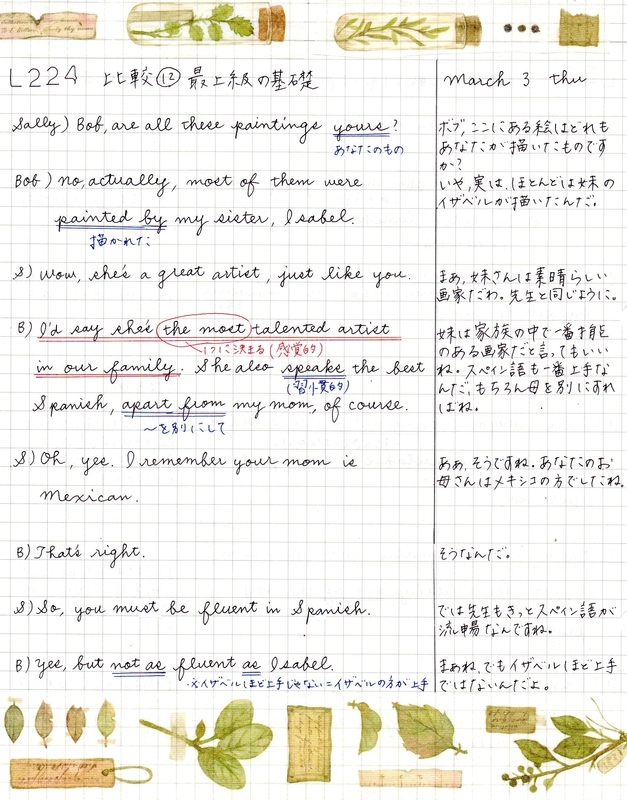 L224 比較⑫ 最上級の基礎 March 3 thu
Sally) Bob, are all these paintings yours?
あなたのもの
Bob) no, actually, most of them were
painted by my sister, Isabel.
描かれた
S) wow, she's a great artist, just like you.
B) I'd say she's the most talented artist
1つに決まる(感覚的)
in our family. She also speaks the best
(習慣的)
Spanish, apart from my mom, of course.
〜を別にして
S) Oh, yes. I remember your mom is
mexican.
B) That's right.
S) So, you must be fluent in Spanish.
B) yes, but not as fluent as Isabel.
※イザベルほど上手じゃない=イザベルの方が上手
ボブ,ここにある絵はどれも
あなたが描いたものです
か?
いや,実は、ほとんどは妹の
イザベルが描いたんだ。
まあ,妹さんは素晴らしい
画家だわ。先生と同じように。
妹は家族の中で一番才能
のある画家だと言ってもいい
ね。スペイン語も一番上手な
んだ,もちろん母を別にすれ
ばね。
ああ,そうですね。あなたのお
母さんはメキシコの方でしたね。
そうなんだ。
では先生もきっとスペイン語が
流暢なんですね。
まあね,でもイザベルほど上手
ではないんだよ。